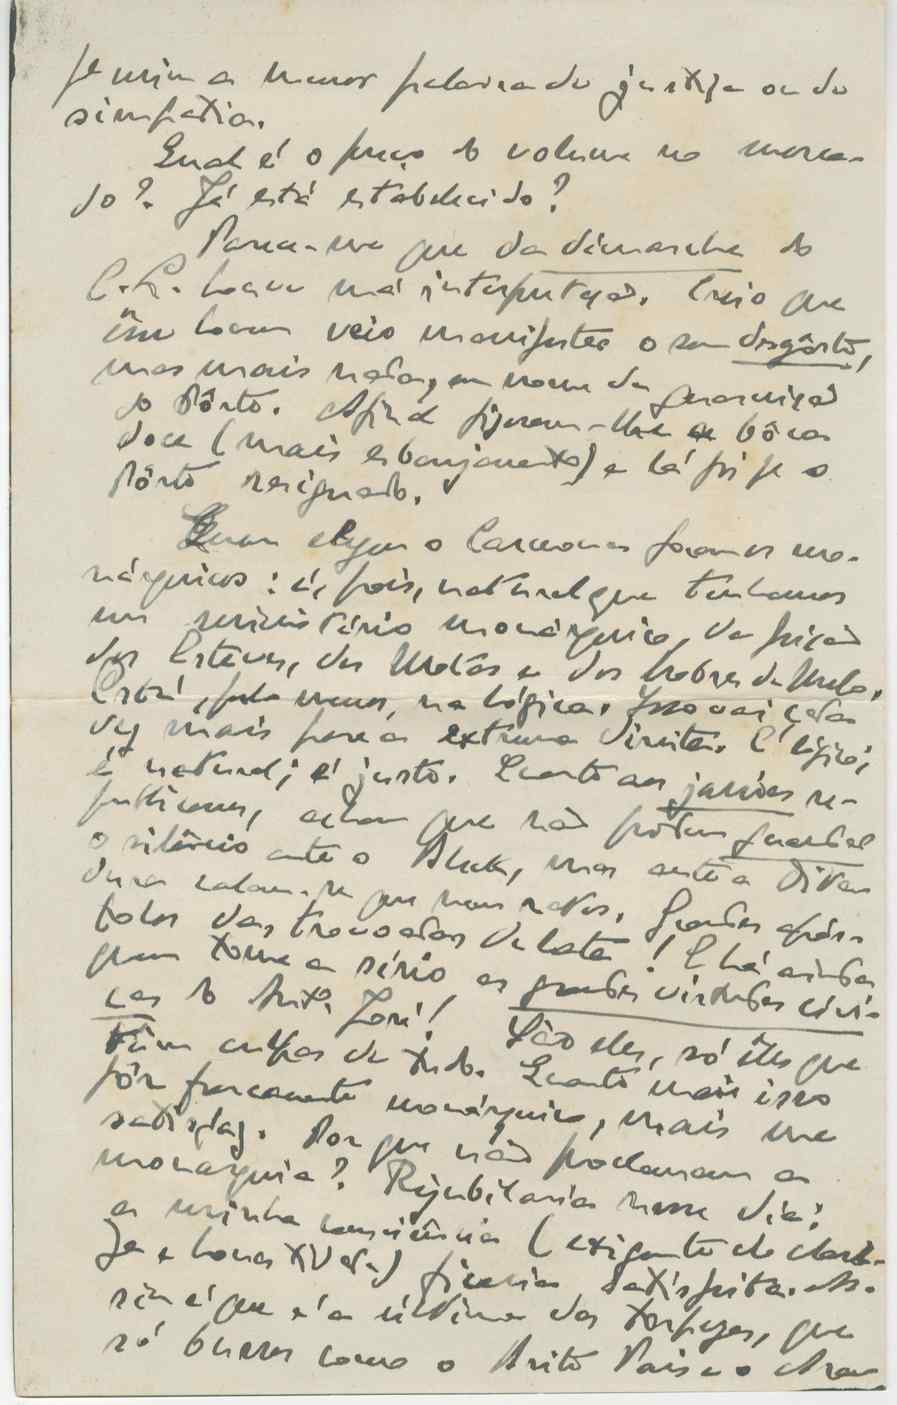 de mim a menor palavra de justiça ou de
simpatia.
Qual é o preço do volume no merca-
do? Já está estabelecido?
Parece-me que da démarche do
C.L. houve má interpretação. Creio que
êm houve veio manifestar o seu desgôsto,
mas mais nada, em nome da guarnição
do Pôrto. Afinal fizeram-lhe a bôca
doce (mais esbanjamento) e lá foi p.ª o
Pôrto resignado.
Quem elegeu o Carmona foram os mo-
nárquicos: é, pois, natural que tenhamos
um ministério monárquico, da feição
dos Esteves, dos Motas e dos Nobres de Melo.
Está, pelo menos, na lógica. Isso vai cada
vez mais para a extrema direita. É lógico;
é natural; é justo. Quanto aos jarrões re-
publicanos, acham que não podem guardar
o silêncio ante o Bluk, mas ante a Dita-
dura calam-se que nem ratos. Grandes após-
tolos das trovoadas de lata! E há ainda
quem tome a sério as grandes virtudes cívi-
cas do Antº José! São eles, só êles que
têm culpa de tudo. Quanto mais isso
fôr francamente monárquico, mais me
satisfaz. Por que não proclamam a
monarquia? Rejubilaria nesse dia:
a minha consciência (exigente de clare-
za e honestidade) ficaria satisfeita. As-
sim é que é a última das torpezas, que
só burros como o Brito Pais e o Ara